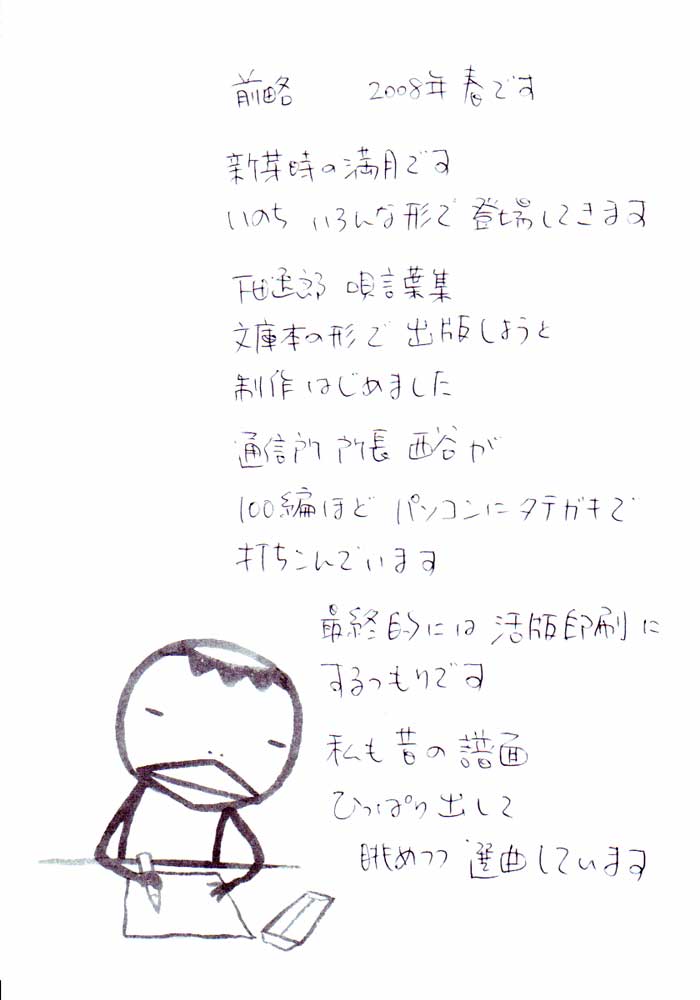 前略　2008年 春です
新芽時の満月です
いのち いろんな形で 登場してきます
下田逸郎 唄言葉集
文庫本の形で 出版しようと
制作はじめました
通信所 所長 西谷が
100編ほど パソコンにタテガキで
打ちこんでいます
最終的には 活版印刷に
するつもりです
私も昔の譜面
ひっぱり出して
眺めつつ 選曲しています